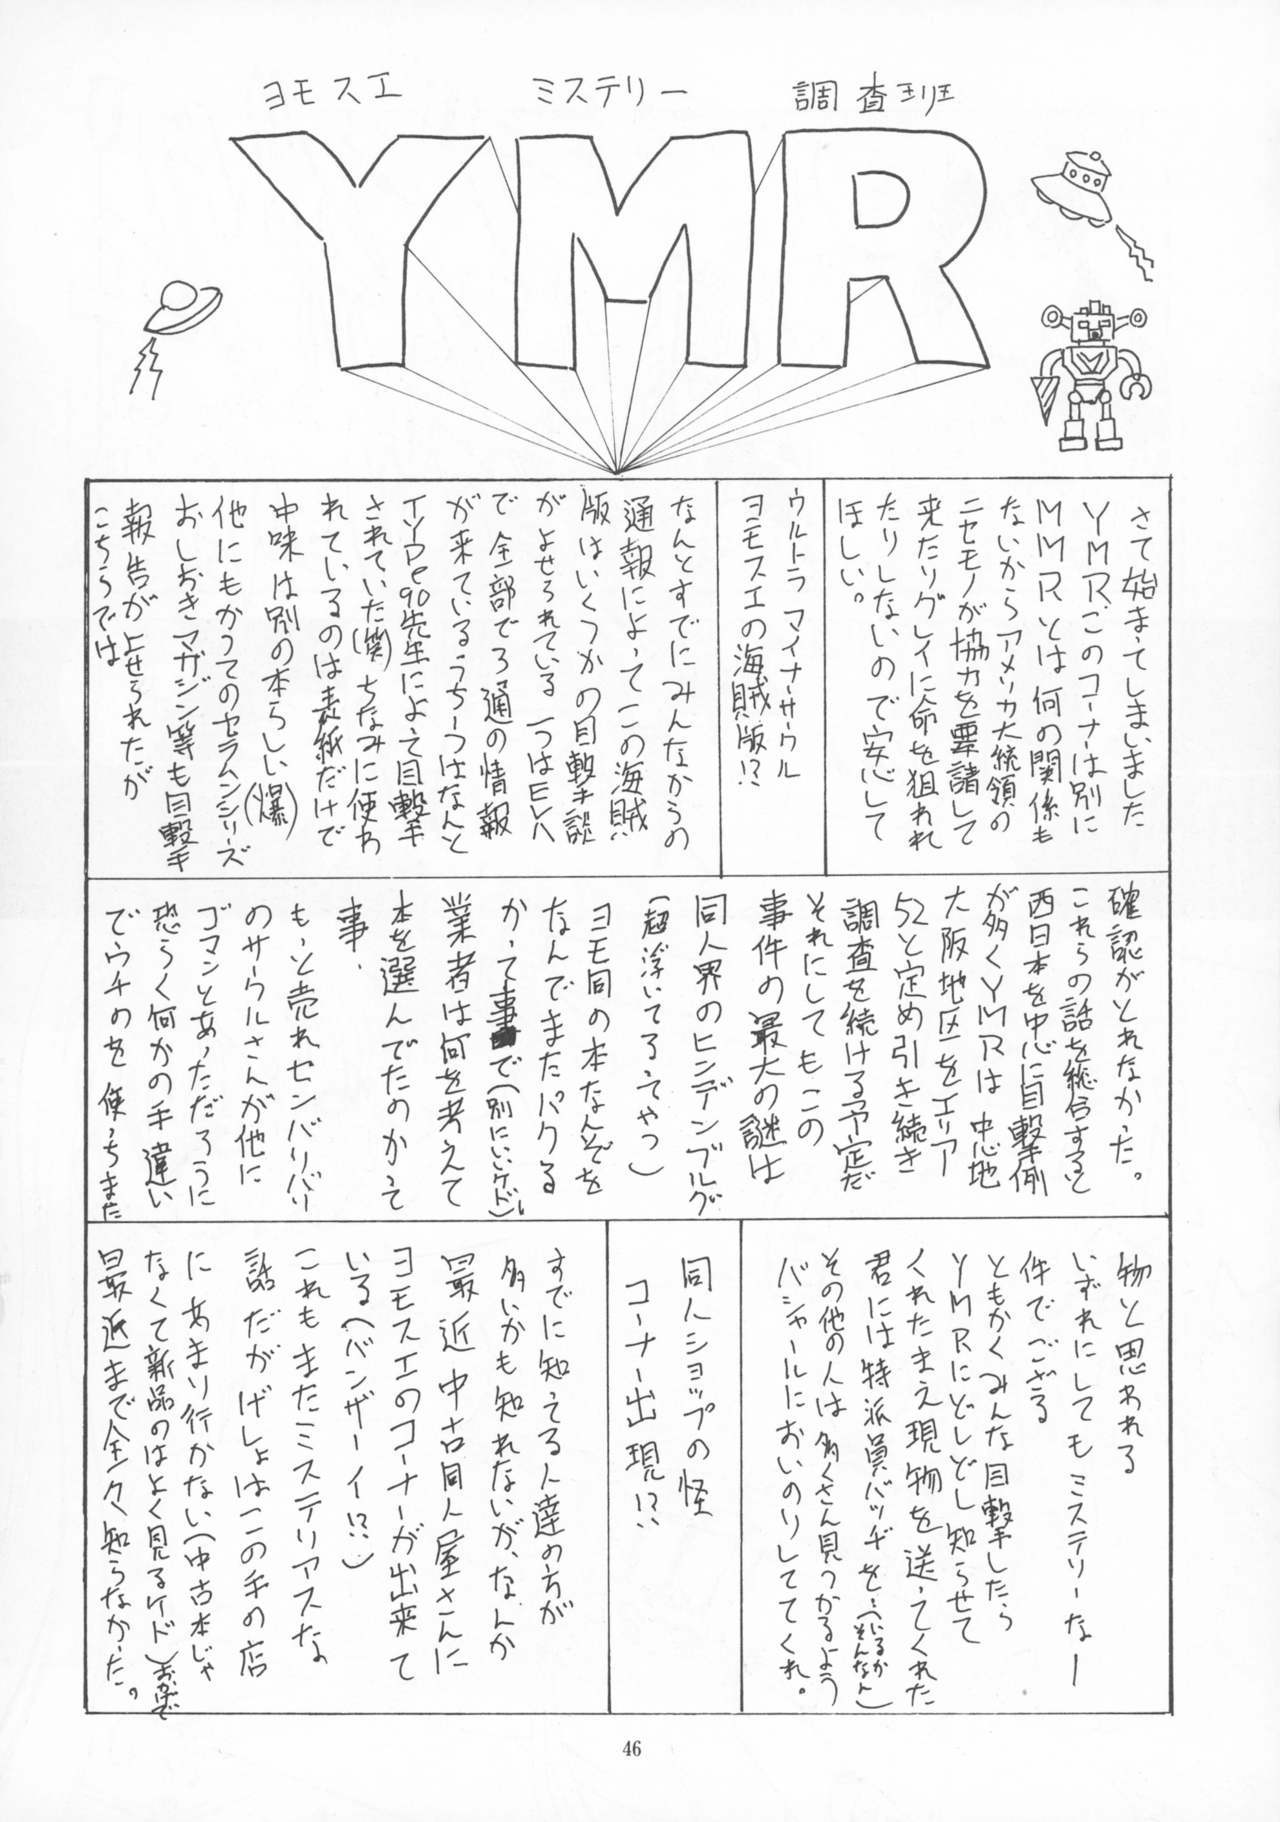 ヨモスエ ミステリー 調査班
YMR
さて始まってしまいました
YMR。このコーナーは別に
MMRとは何の関係も
ないからアメリカ大統領の
ニセモノが協力を要請して
来たりグレイに命を狙われ
たりしないので安心して
ほしい。
ウルトラ マイナーサークル
ヨモスエの海賊版!?
なんとすでにみんなからの
通報によってこの海賊
版はいくつかの目撃談
がよせられている 一つはEVA
で全部で3通の情報
が来ているうち一つはなんと
TYPE90先生によって目撃
されていた(笑)ちなみに使わ
れているのは表紙だけで
中味は別の本らしい(爆)
他にもかつてのセラムンシリーズ
おしおきマガジン等も目撃
報告がよせられたが
こちらでは
確認がとれなかった。
これらの話を総合すると
西日本を中心に目撃例
が多くYMRは中心地
大阪地区をエリア
52と定め引き続き
調査を続ける予定だ
それにしてもこの
事件の最大の謎は
同人界のヒンデンブルグ
(超浮いてるってやつ)
ヨモ同の本なんぞを
なんでまたパクる
かって事で(別にいいケドし)
業者は何を考えて
本を選んでたのかって
事、
もっと売れセンバリバリ
のサークルさんが他に
ゴマンとあっただろうに
恐らく何かの手違い
でウチのを使っちまた
物と思われる
いずれにしてもミステリーなー
件でござる
ともかくみんな目撃したら
YMRにどしどし知らせて
くれたまえ現物を送ってくれた
君には特派員バッヂを…(いるかそんなん)
その他の人は多くさん見つかるよう
バシャールにおいのりしててくれ。
同人ショップの怪
コーナー出現!?
すでに知ってる人達の方が
多いかも知れないが、なんか
最近中古同人屋さんに
ヨモスエのコーナーが出来て
いる(バンザーイ!?)
これもまたミステリアスな
話だがげしょはこの手の店
にあまり行かない(中古本じゃ
なくて新品のはよく見るケド)おかげで
最近まで全々知らなかった。
46